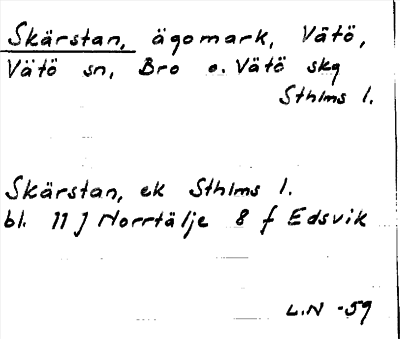 Skärstan, ägomark, Vätö,
Vätö sn, Bro o. Vätö skg
Sthlms l.
Skärstan, ek Sthlms l.
bl. 11 J Norrtälje 8 f Edsvik
L.N -59